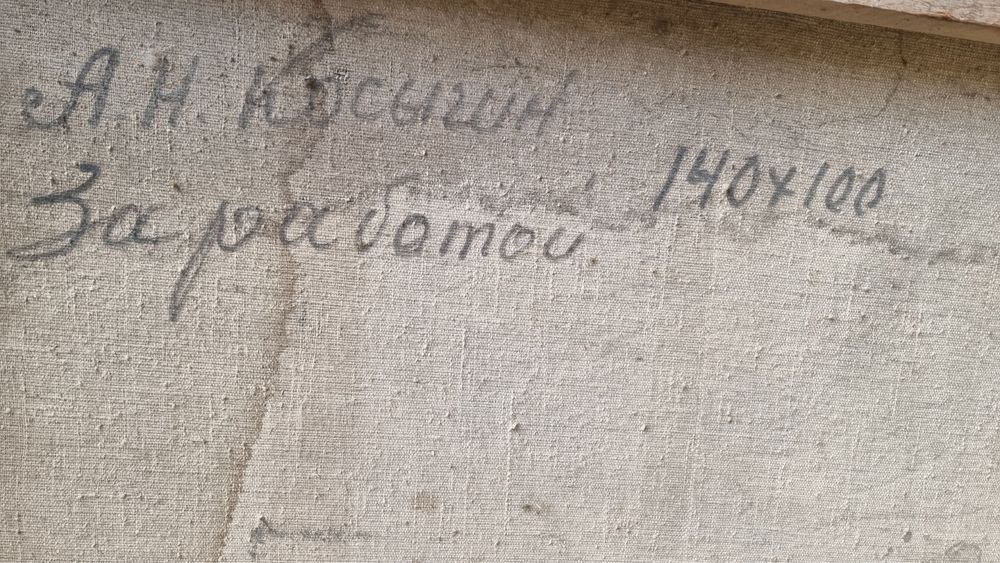 А.Н. Косыгин
За работой 140х100